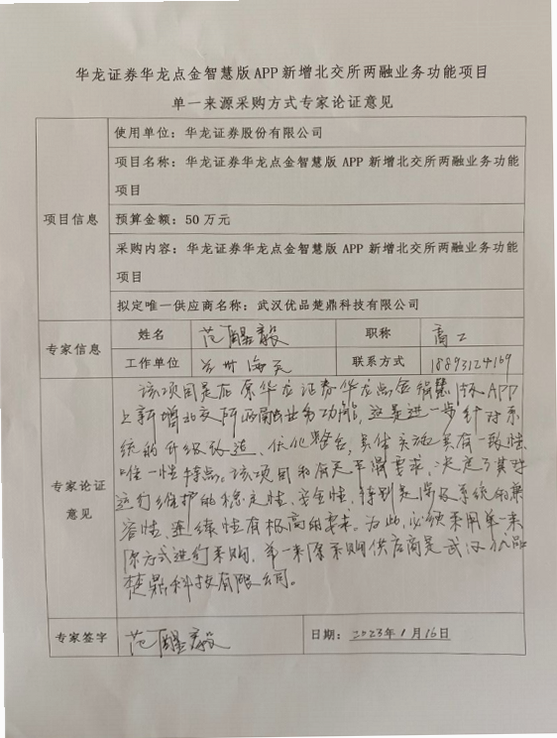 华龙证券华龙点金智慧版 APP 新增北交所两融业务功能项目
单一来源采购方式专家论证意见
项目信息
使用单位：华龙证券股份有限公司
项目名称：华龙证券华龙点金智慧版 APP 新增北交所两融业务功能
项目
预算金额：50 万元
采购内容：华龙证券华龙点金智慧版 APP 新增北交所两融业务功能
项目
拟定唯一供应商名称：武汉优品楚鼎科技有限公司
专家信息
姓名 范醒毅 职称 高工
工作单位 兰州海天 联系方式 18893124169
专家论证
意见
该项目是在原华龙证券华龙点金智慧版APP
上新增北交所两融业务功能，这是进一步针对系
统的升级改造、优化整合，具体实施具有一致性
唯一性特点。该项目和有关平滑要求，决定了其对
运行维护的稳定性、安全性，特别是涉及系统的兼
容性、连续性有极高的要求。为此，必须采用单一来
源方式进行采购，单一来源采购供应商是武汉优品
楚鼎科技有限公司。
专家签字 范醒毅 日期：2023年1月16日